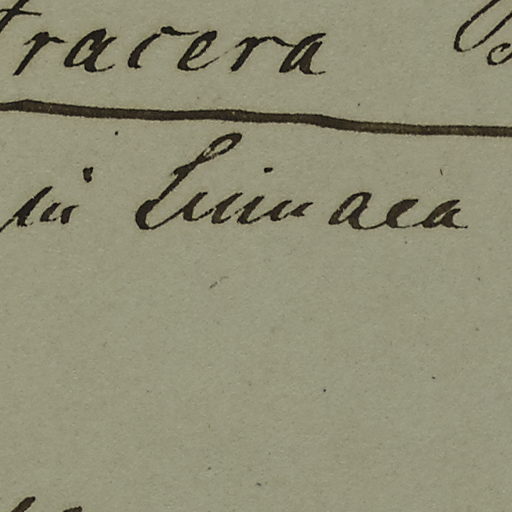 tracera
in Linnaea